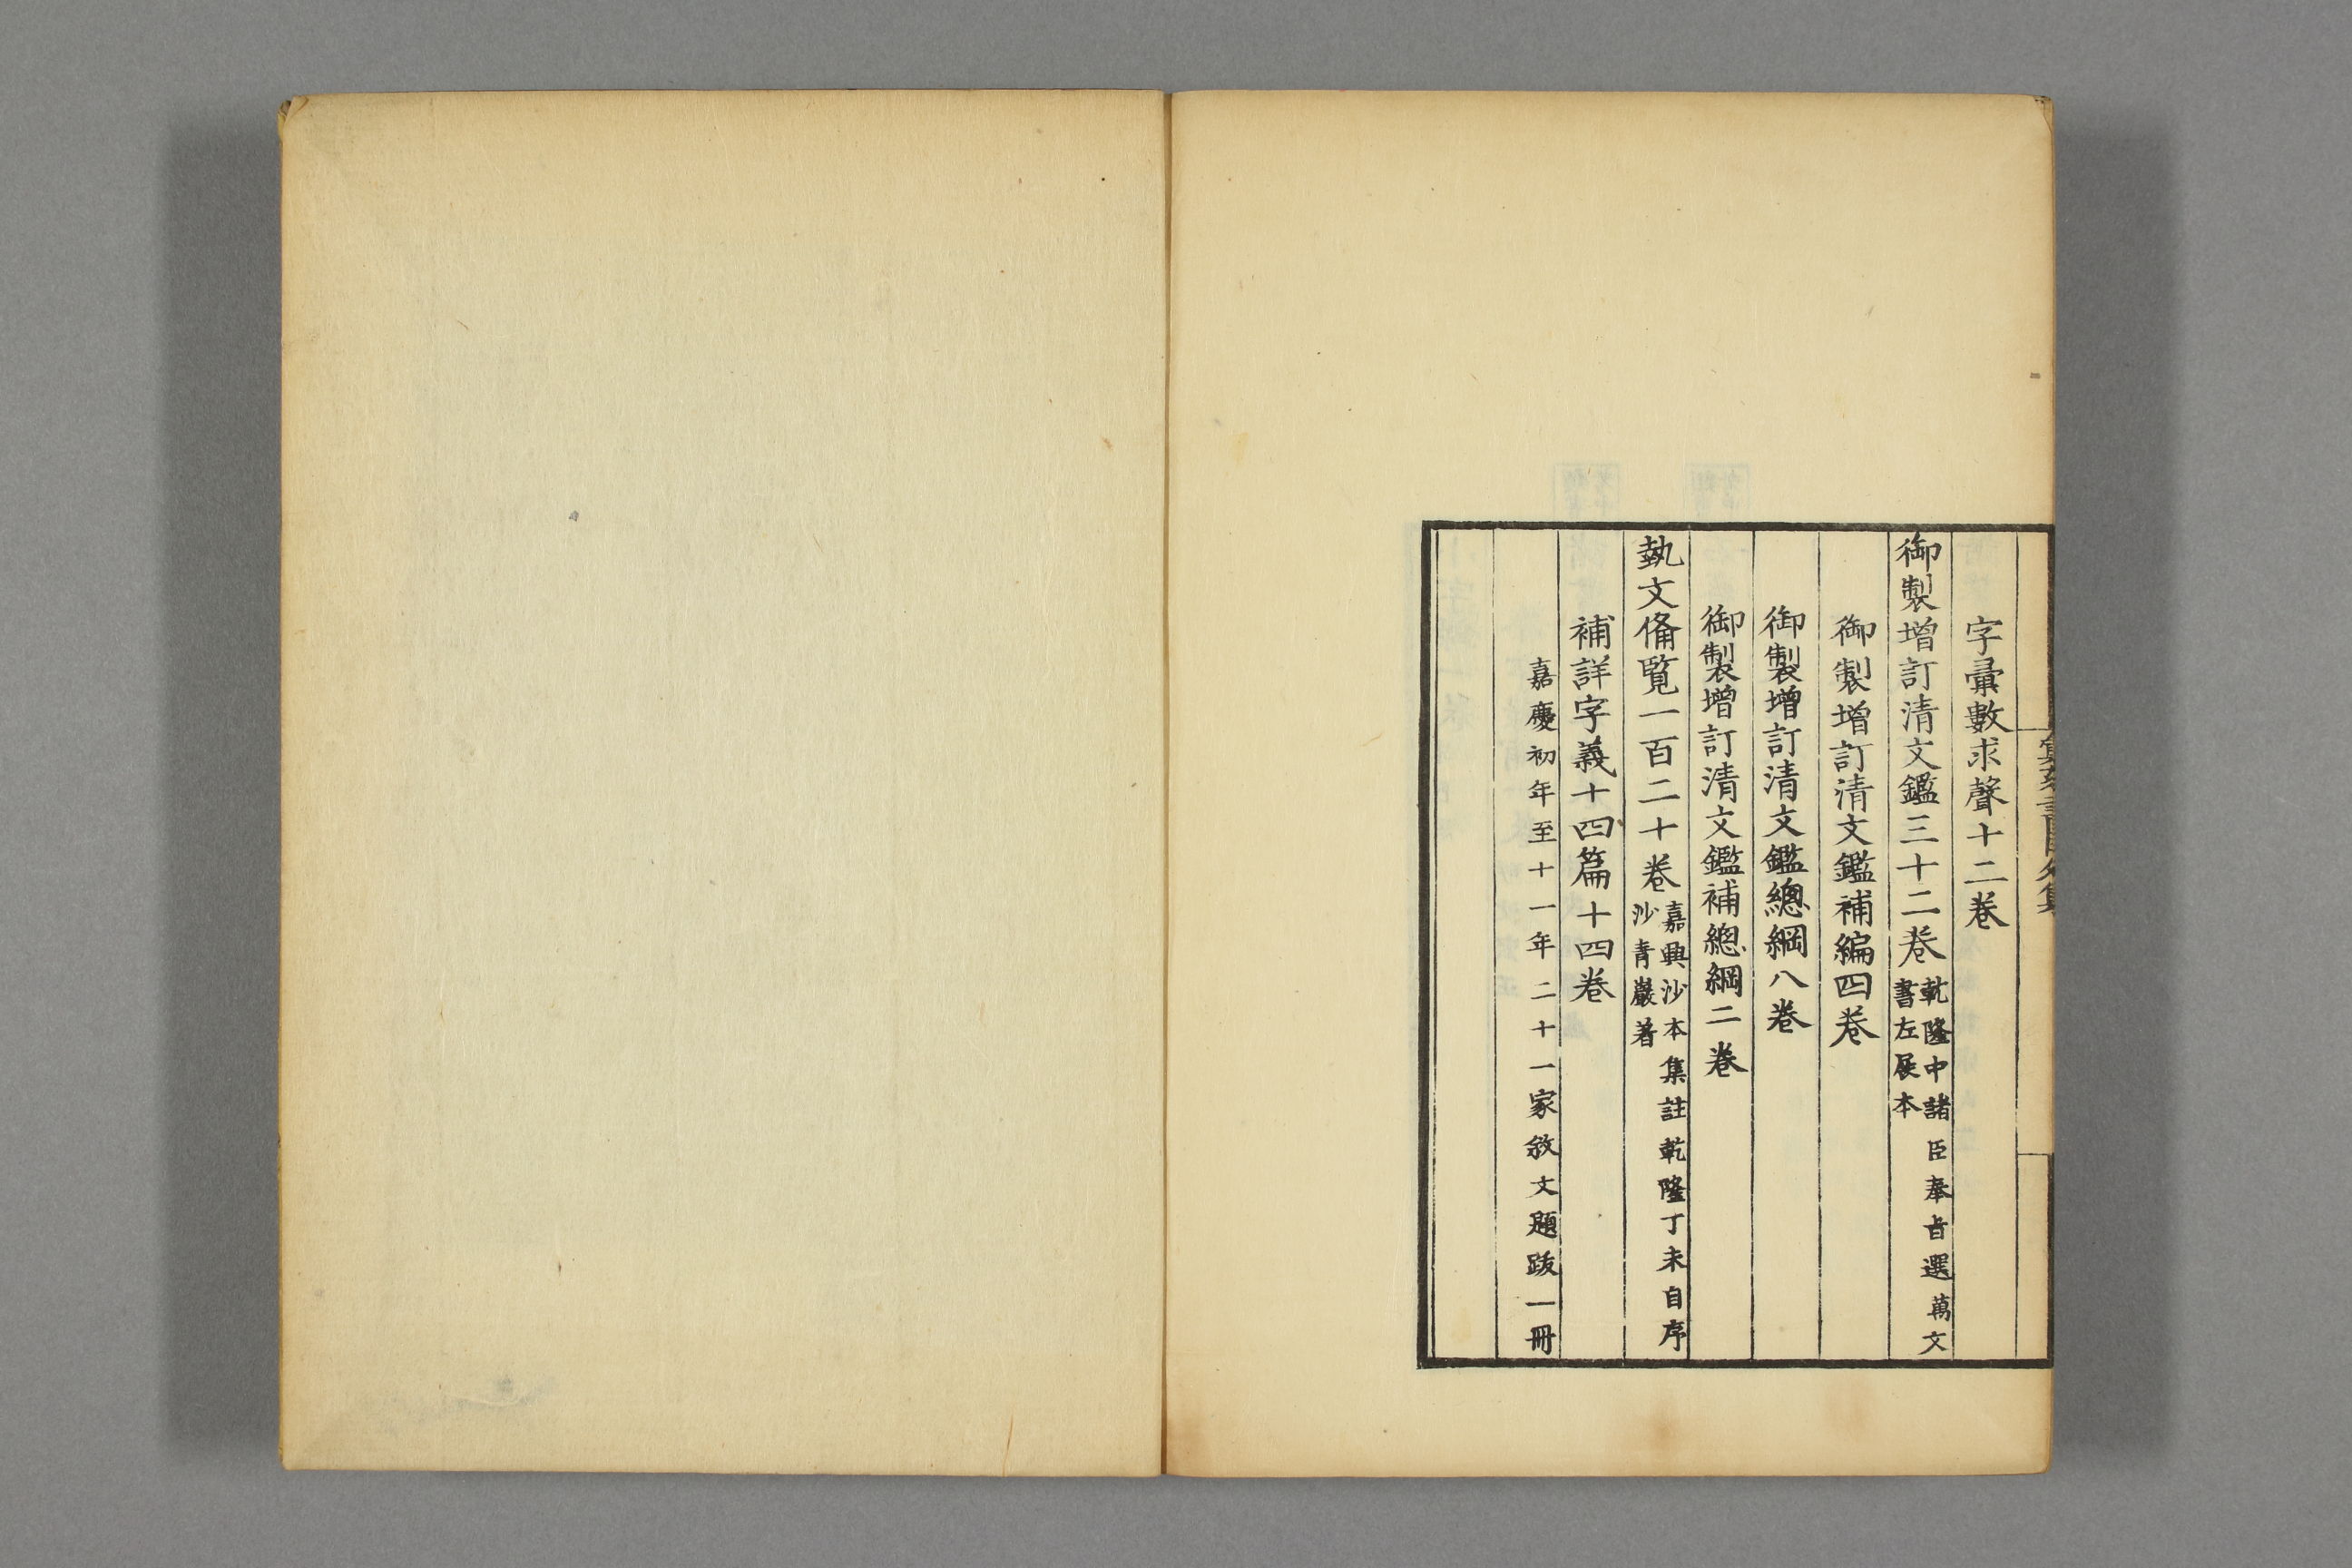 字彙數求聲十二卷
御製增訂清文鑑三十二卷
乾隆中諸臣奉旨選萬文
書左展本
御製增訂清文鑑補編四卷
御製增訂清文鑑總綱八卷
御製增訂清文鑑補總綱二卷
埶文俻覧一百二十卷
嘉興沙本集註乾隆丁未自序
沙青巖著
補詳字義十四篇十四卷
嘉慶初年至十一年二十一家敘文題跋一冊